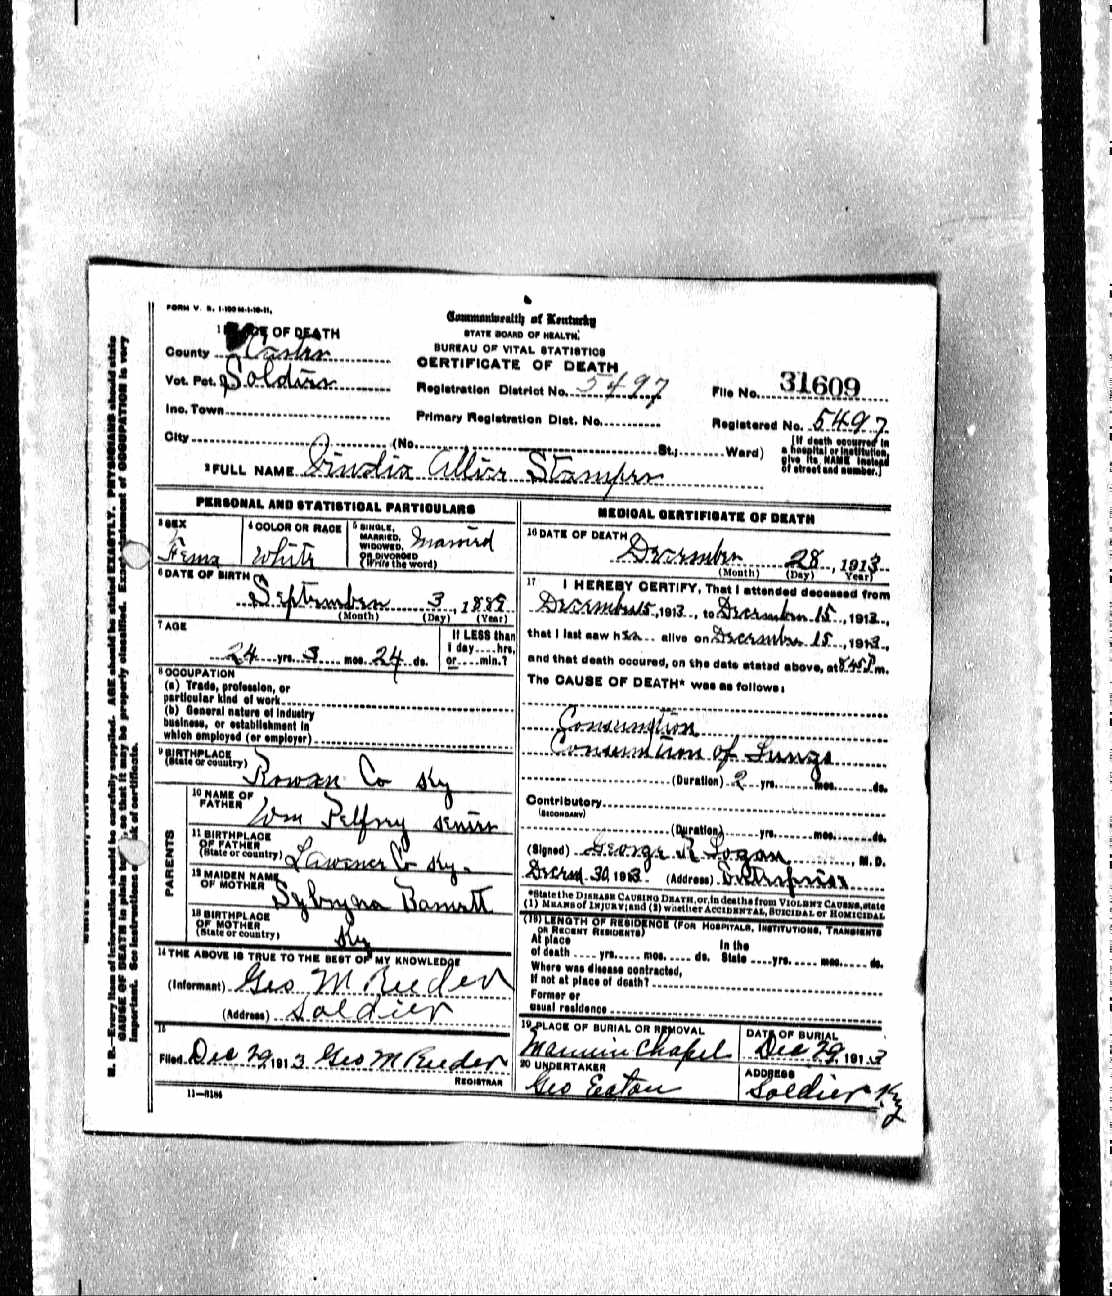 FORM V. S. 1-100 M-1-10-11.
Commonwealth of Kentucky
STATE BOARD OF HEALTH.
BUREAU OF VITAL STATISTICS
CERTIFICATE OF DEATH
1 OF DEATH
County Carter
Vot. Pct. Soldier
Inc. Town
City
Registration District No. 5497
Primary Registration Dist. No.
File No. 31609
Registered No. 5497
(No. St.; Ward)
[If death occurred in
a hospital or institution,
give its NAME instead
of street and number.]
2 FULL NAME Allice Stamper
PERSONAL AND STATISTICAL PARTICULARS
3 SEX
Fema
4 COLOR OR RACE
White
5 SINGLE,
MARRIED,
WIDOWED,
OR DIVORCED
(Write the word)
Married
6 DATE OF BIRTH
September 3, 1889
(Month) (Day) (Year)
7 AGE
24 yrs. 3 mos. 24 ds.
If LESS than
1 day....hrs.
or....min.?
8 OCCUPATION
(a) Trade, profession, or
particular kind of work
(b) General nature of industry
business, or establishment in
which employed (or employer)
9 BIRTHPLACE
(State or country)
Rowan Co Ky
PARENTS
10 NAME OF
FATHER
Wm Pelfrey senior
11 BIRTHPLACE
OF FATHER
(State or country)
Lawrence Co Ky.
12 MAIDEN NAME
OF MOTHER
Barnett
13 BIRTHPLACE
OF MOTHER
(State or country)
Ky
14 THE ABOVE IS TRUE TO THE BEST OF MY KNOWLEDGE
(Informant) Geo M Reeder
(Address) Soldier
15
Filed Dec 29, 1913 Geo M Reeder
REGISTRAR
11—3184
MEDICAL CERTIFICATE OF DEATH
16 DATE OF DEATH
December 28, 1913
(Month) (Day) Year)
17 I HEREBY CERTIFY, That I attended deceased from
December 15, 1913, to December 15, 1913,
that I last saw her alive on December 15, 1913,
and that death occured, on the date stated above, at 8.45 P. m.
The CAUSE OF DEATH* was as follows:
Consumtion
Consumtion of Lungs
(Duration) 2 yrs. mos. ds.
Contributory
(SECONDARY)
(Duration) yrs. mos. ds.
(Signed) George R Logan, M. D.
30, 1913 (Address) Enterprise
*State the DISEASE CAUSING DEATH, or, in deaths from VIOLENT CAUSES, state
(1) MEANS of INJURY; and (2) whether ACCIDENTAL, SUICIDAL or HOMICIDAL
(18) LENGTH OF RESIDENCE (FOR HOSPITALS, INSTITUTIONS, TRANSIENTS
OR RECENT RESIDENTS)
At place
of death ....yrs.....mos.....ds.
In the
State ....yrs.....mos.....ds.
Where was disease contracted,
If not at place of death?
Former or
usual residence
19 PLACE OF BURIAL OR REMOVAL
Chapel
DATE OF BURIAL
Dec 29, 1913
20 UNDERTAKER
Geo Eaton
ADDRESS
Soldier Ky
N. B.—Every item of information should be carefully supplied. AGE should be stated EXACTLY. PHYSICIANS should state
CAUSE OF DEATH in plain so that it may be properly classified. Exact statement of OCCUPATION is very
important. See instructions of certificate.